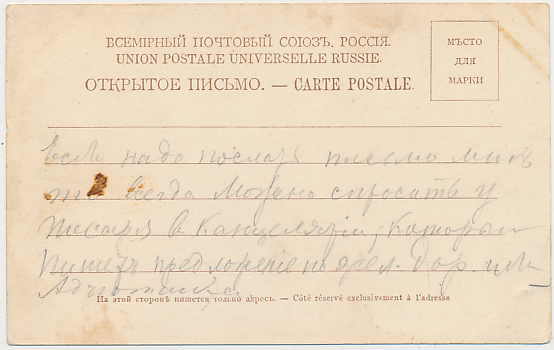 ВСЕМІРНЫЙ ПОЧТОВЫЙ СОЮЗЪ, РОССІЯ.
UNION POSTALE UNIVERSELLE RUSSIE.
ОТКРЫТОЕ ПИСЬМО. — CARTE POSTALE.
МѢСТО
ДЛЯ
МАРКИ
если надо послать письмо мнѣ
то всегда можно спросить у
писаря в канцелярiи, которой
пишетъ предложение
На этой сторонѣ пишется только адресъ. — Côté réservé exclusivement à l'adresse